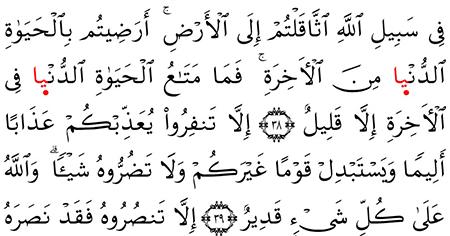 فِى سَبِيلِ ٱللَّهِ ٱثَّاقَلْتُمْ إِلَى ٱلْأَرْضِ ۚ أَرَضِيتُم بِٱلْحَيَوٰةِ
ٱلدُّنْيَا مِنَ ٱلْـَٔاخِرَةِ ۚ فَمَا مَتَـٰعُ ٱلْحَيَوٰةِ ٱلدُّنْيَا فِى
ٱلْـَٔاخِرَةِ إِلَّا قَلِيلٌ ﴿٣٨﴾ إِلَّا تَنفِرُوا۟ يُعَذِّبْكُمْ عَذَابًا
أَلِيمًا وَيَسْتَبْدِلْ قَوْمًا غَيْرَكُمْ وَلَا تَضُرُّوهُ شَيْـًٔا ۗ وَٱللَّهُ
عَلَىٰ كُلِّ شَىْءٍ قَدِيرٌ ﴿٣٩﴾ إِلَّا تَنصُرُوهُ فَقَدْ نَصَرَهُ